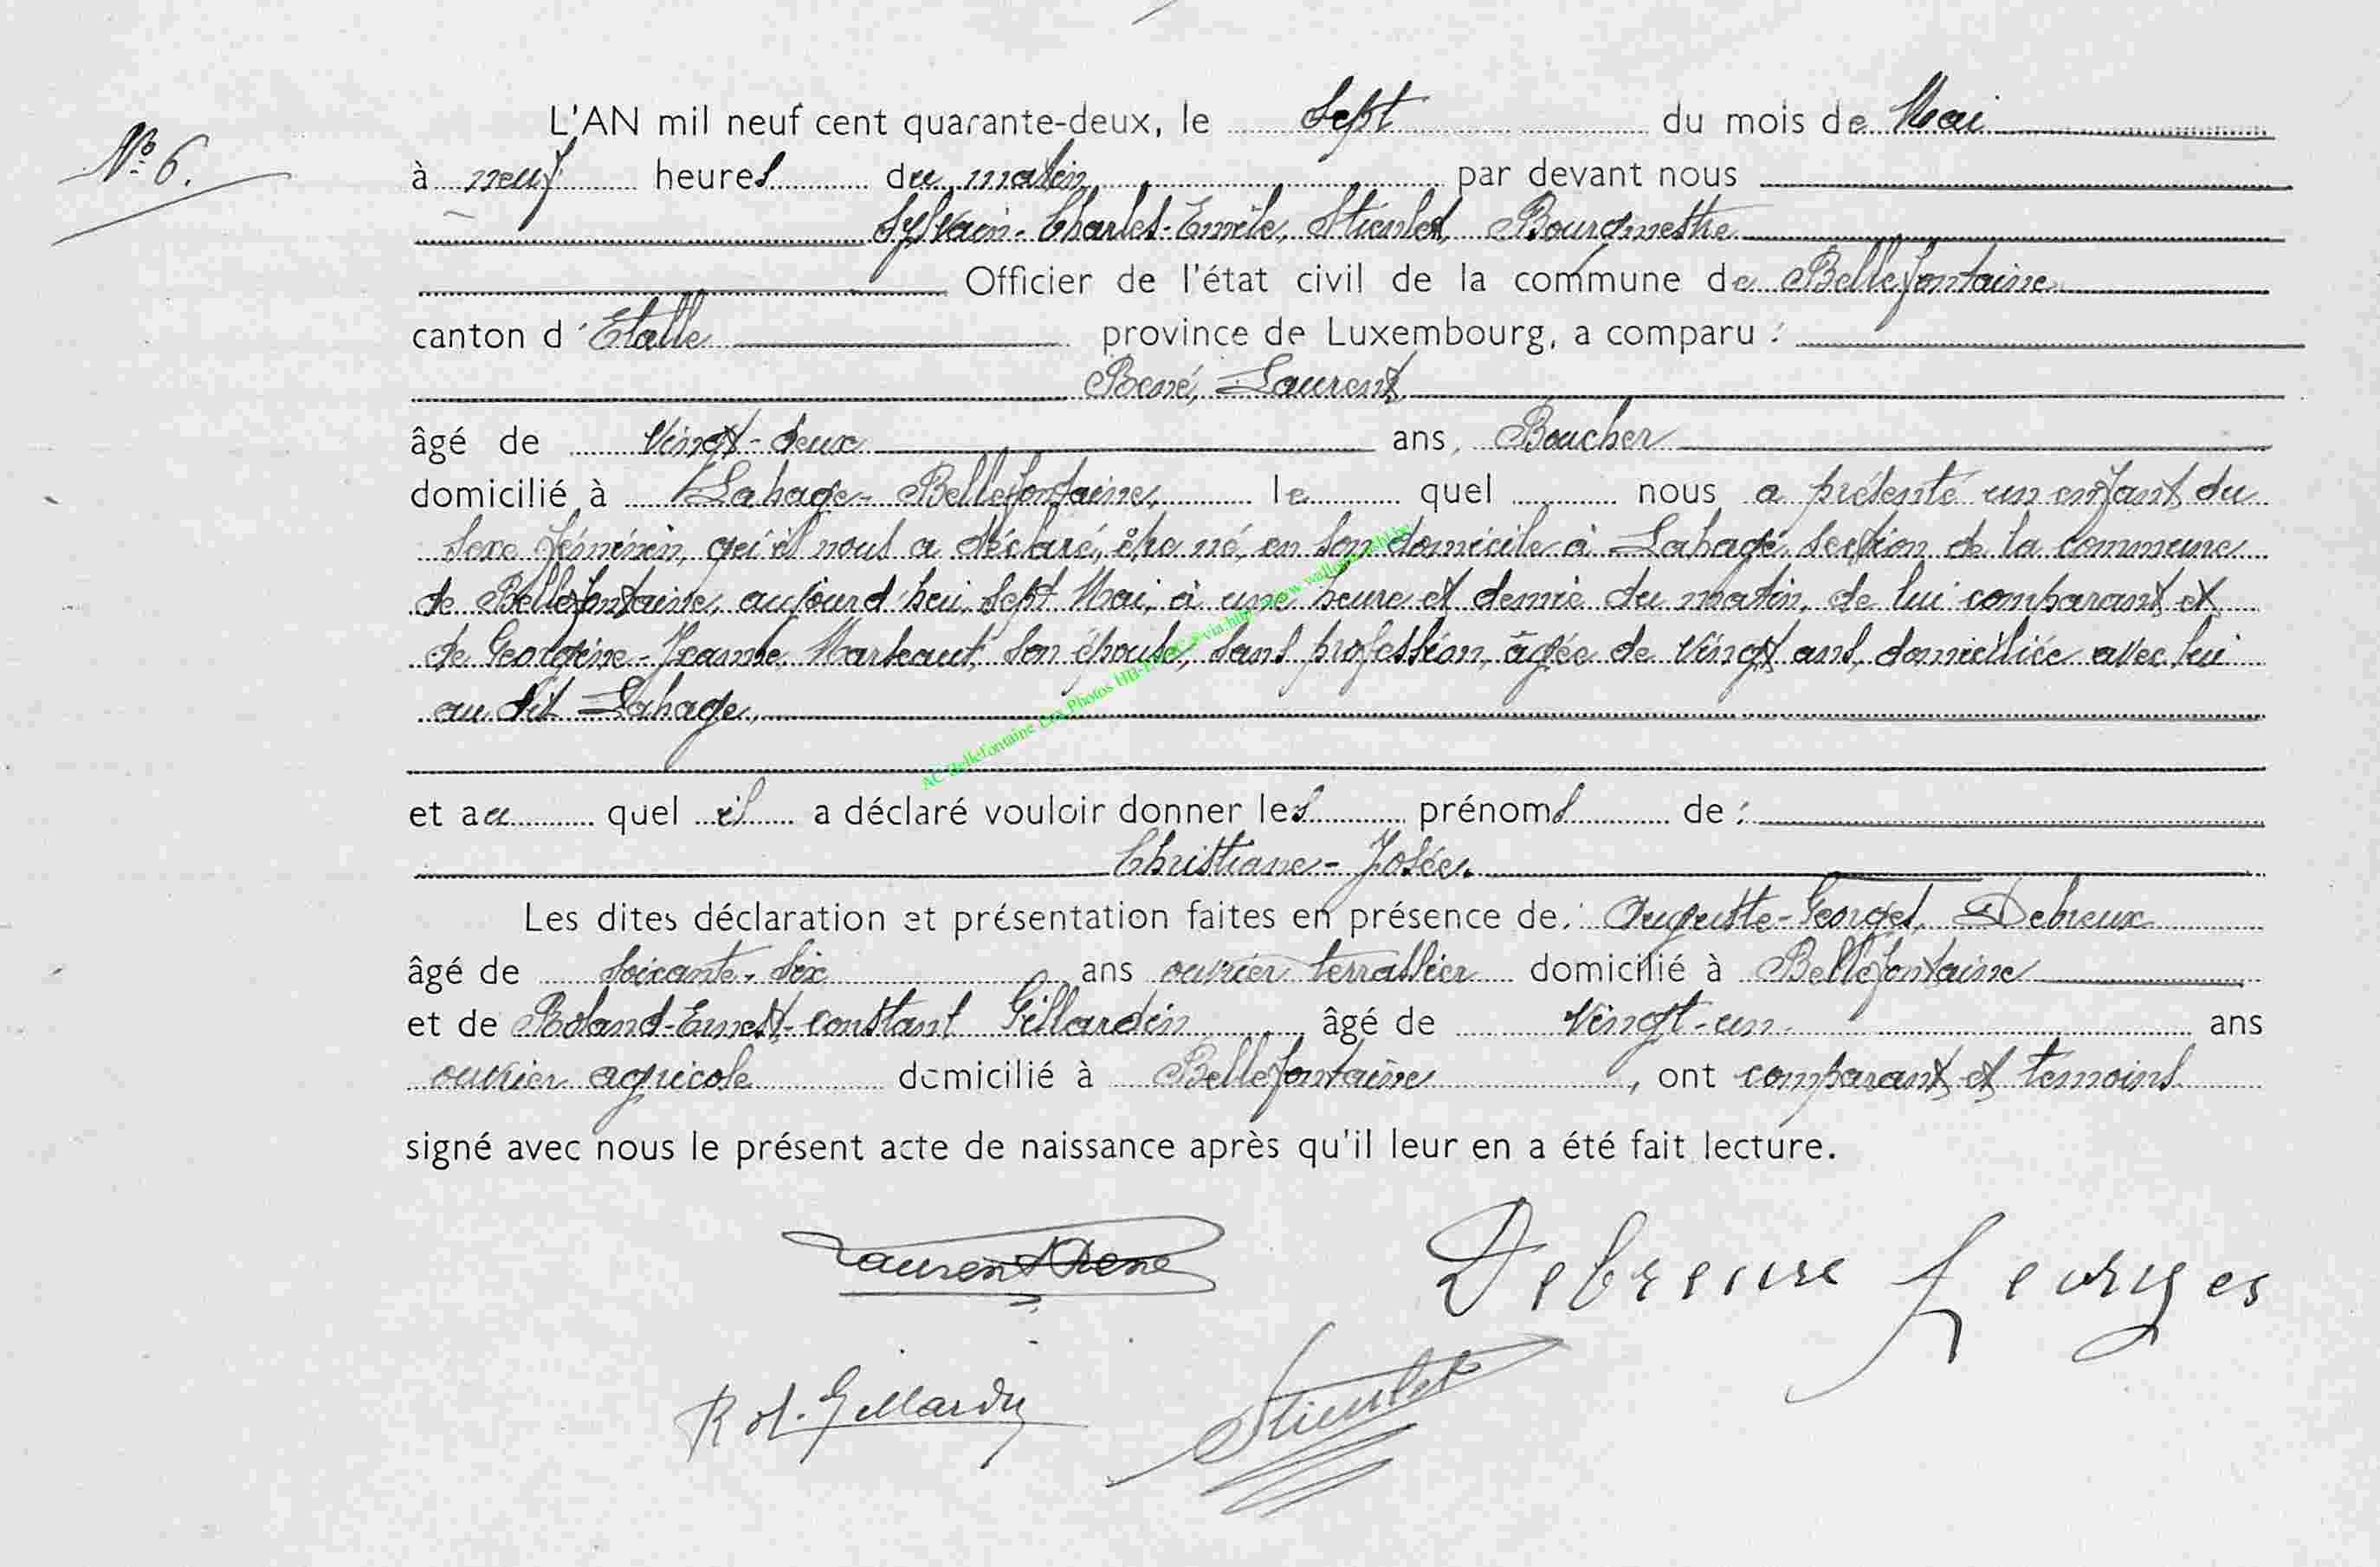 N° 6.
L'AN mil neuf cent quarante-deux, le Sept du mois de Mai
à neuf heures du matin par devant nous
Sylvain-Charles-Emile, Stiénlet, Bourgmestre
Officier de l'état civil de la commune de Bellefontaine
canton d'Etalle province de Luxembourg, a comparu :
René, Laurent
âgé de vingt-deux ans, Boucher
domicilié à Lahage-Bellefontaine, le quel nous a présenté un enfant du
sexe féminin, qu'il nous a déclaré, être né, en son domicile à Lahage, section de la commune
de Bellefontaine, aujourd'hui, sept Mai, à une heure et demie du matin, de lui comparant et
de Georgine-Jeanne, Marteaut, son épouse, sans profession, âgée de vingt ans, domiciliée avec lui
au dit Lahage,
et au quel il a déclaré vouloir donner les prénoms de :
Christiane-Josée.
Les dites déclaration et présentation faites en présence de : Auguste-Georges, Debreux
âgé de soixante-six ans ouvrier terrassier domicilié à Bellefontaine
et de Roland-Ernest-Constant Gillardin, âgé de vingt-un ans
ouvrier agricole domicilié à Bellefontaine, ont comparant et temoins
signé avec nous le présent acte de naissance après qu'il leur en a été fait lecture.
Laurent René
Debreux Georges
Rol. Gillardin
Stiénlet
AC Bellefontaine Lux Photos